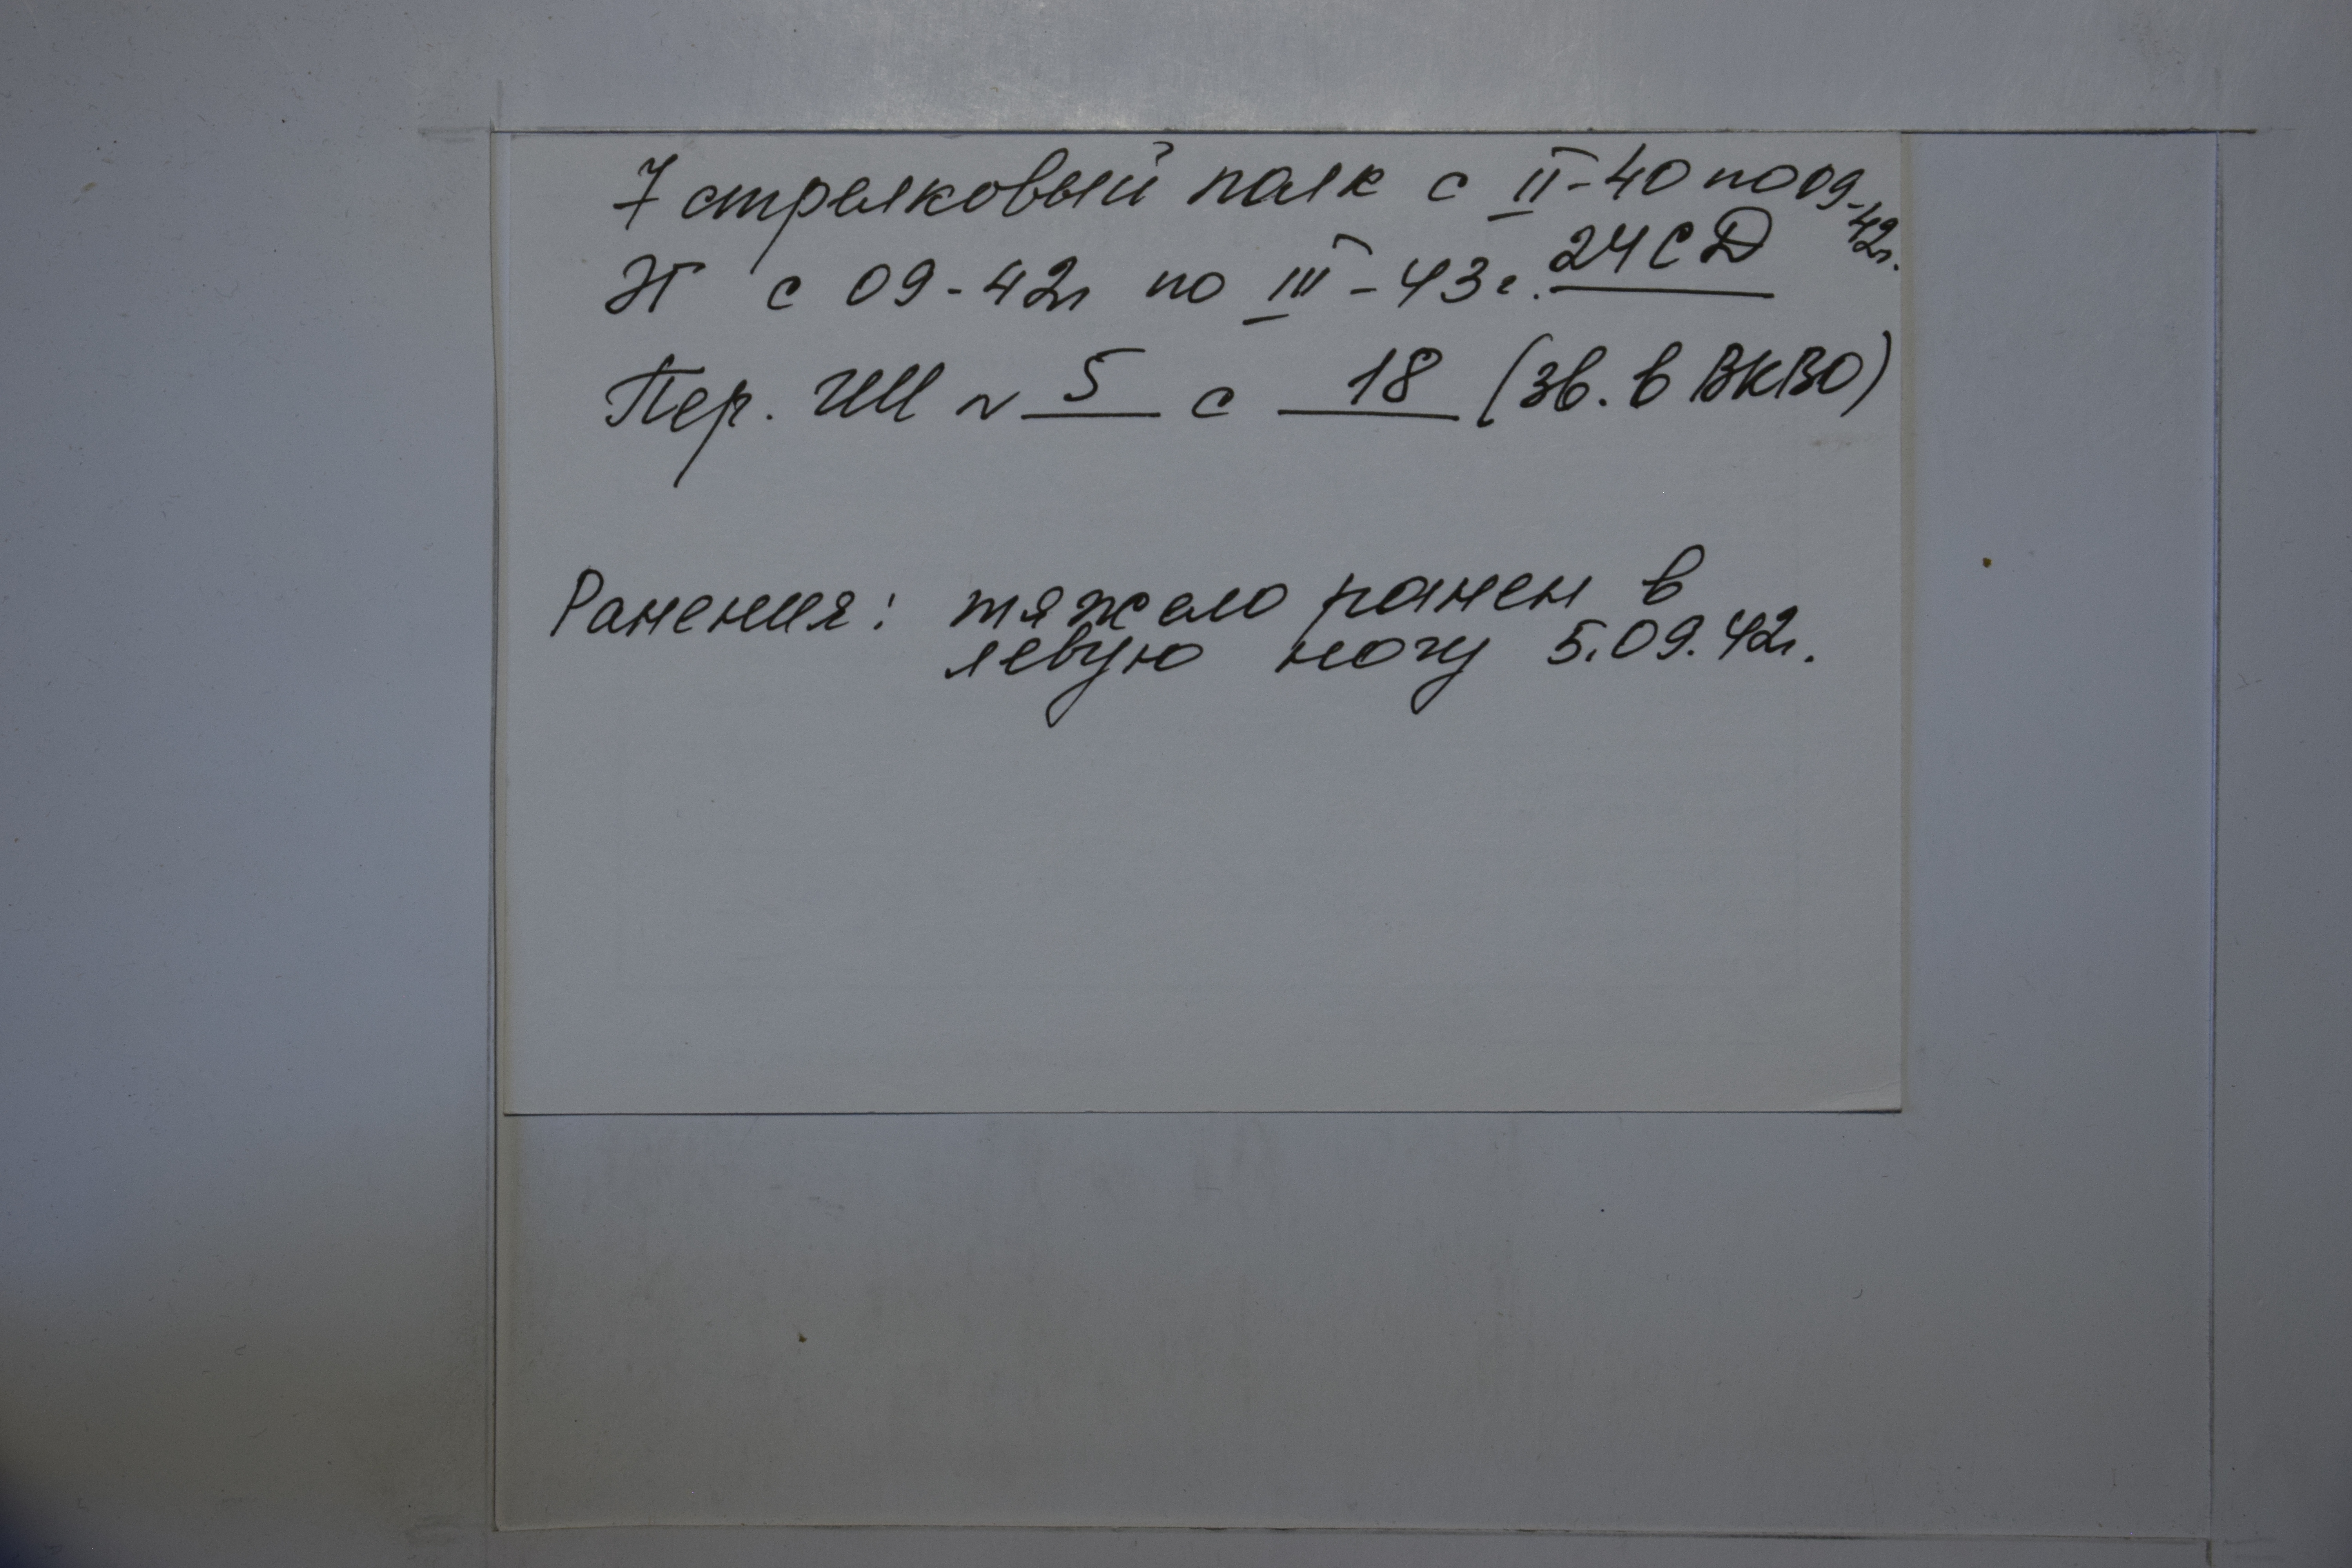 7 стрелковый полк с II-40 по 09-42г.
ЭГ с 09-42г по III-43г. 24СД
Пер. ИМ N 5 с 18 (зв. в ВКВО)
Ранения: тяжело ранен в
левую ногу 5.09.42г.